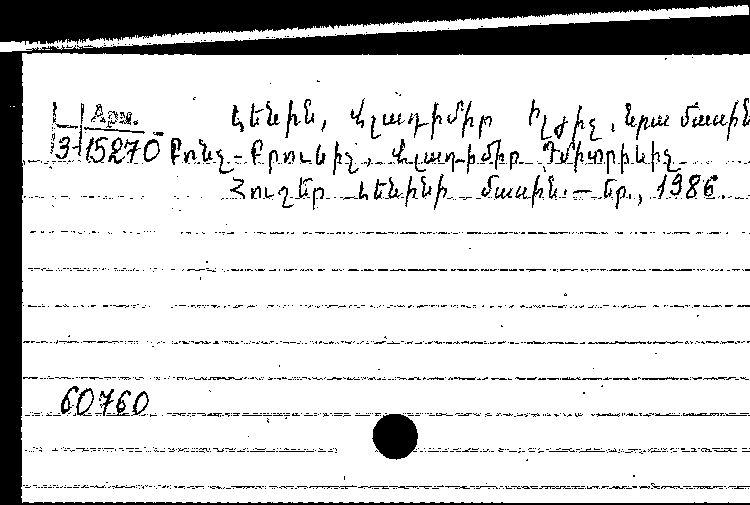 Арм.
Լենին, Վլադիմիր Իլյիչ, նրա մասին
3-15270 Բոնչ-Բրուևիչ, Վլադիմիր Դմիտրիևիչ
Հուշեր Լենինի մասին.— Եր., 1986.
60760